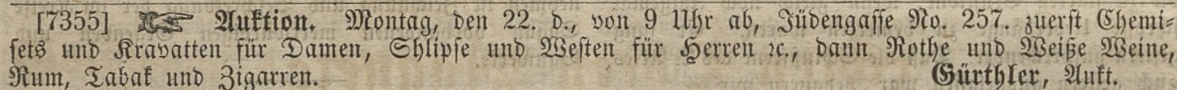 [7355] ☞ Auktion. Montag, den 22. d., von 9 Uhr ab, Jüdengasse No. 257. zuerst Chemi⸗
sets und Kravatten für Damen, Shlipse und Westen für Herren ꝛc., dann Rothe und Weiße Weine,
Rum, Tabak und Zigarren. Gürthler, Aukt.